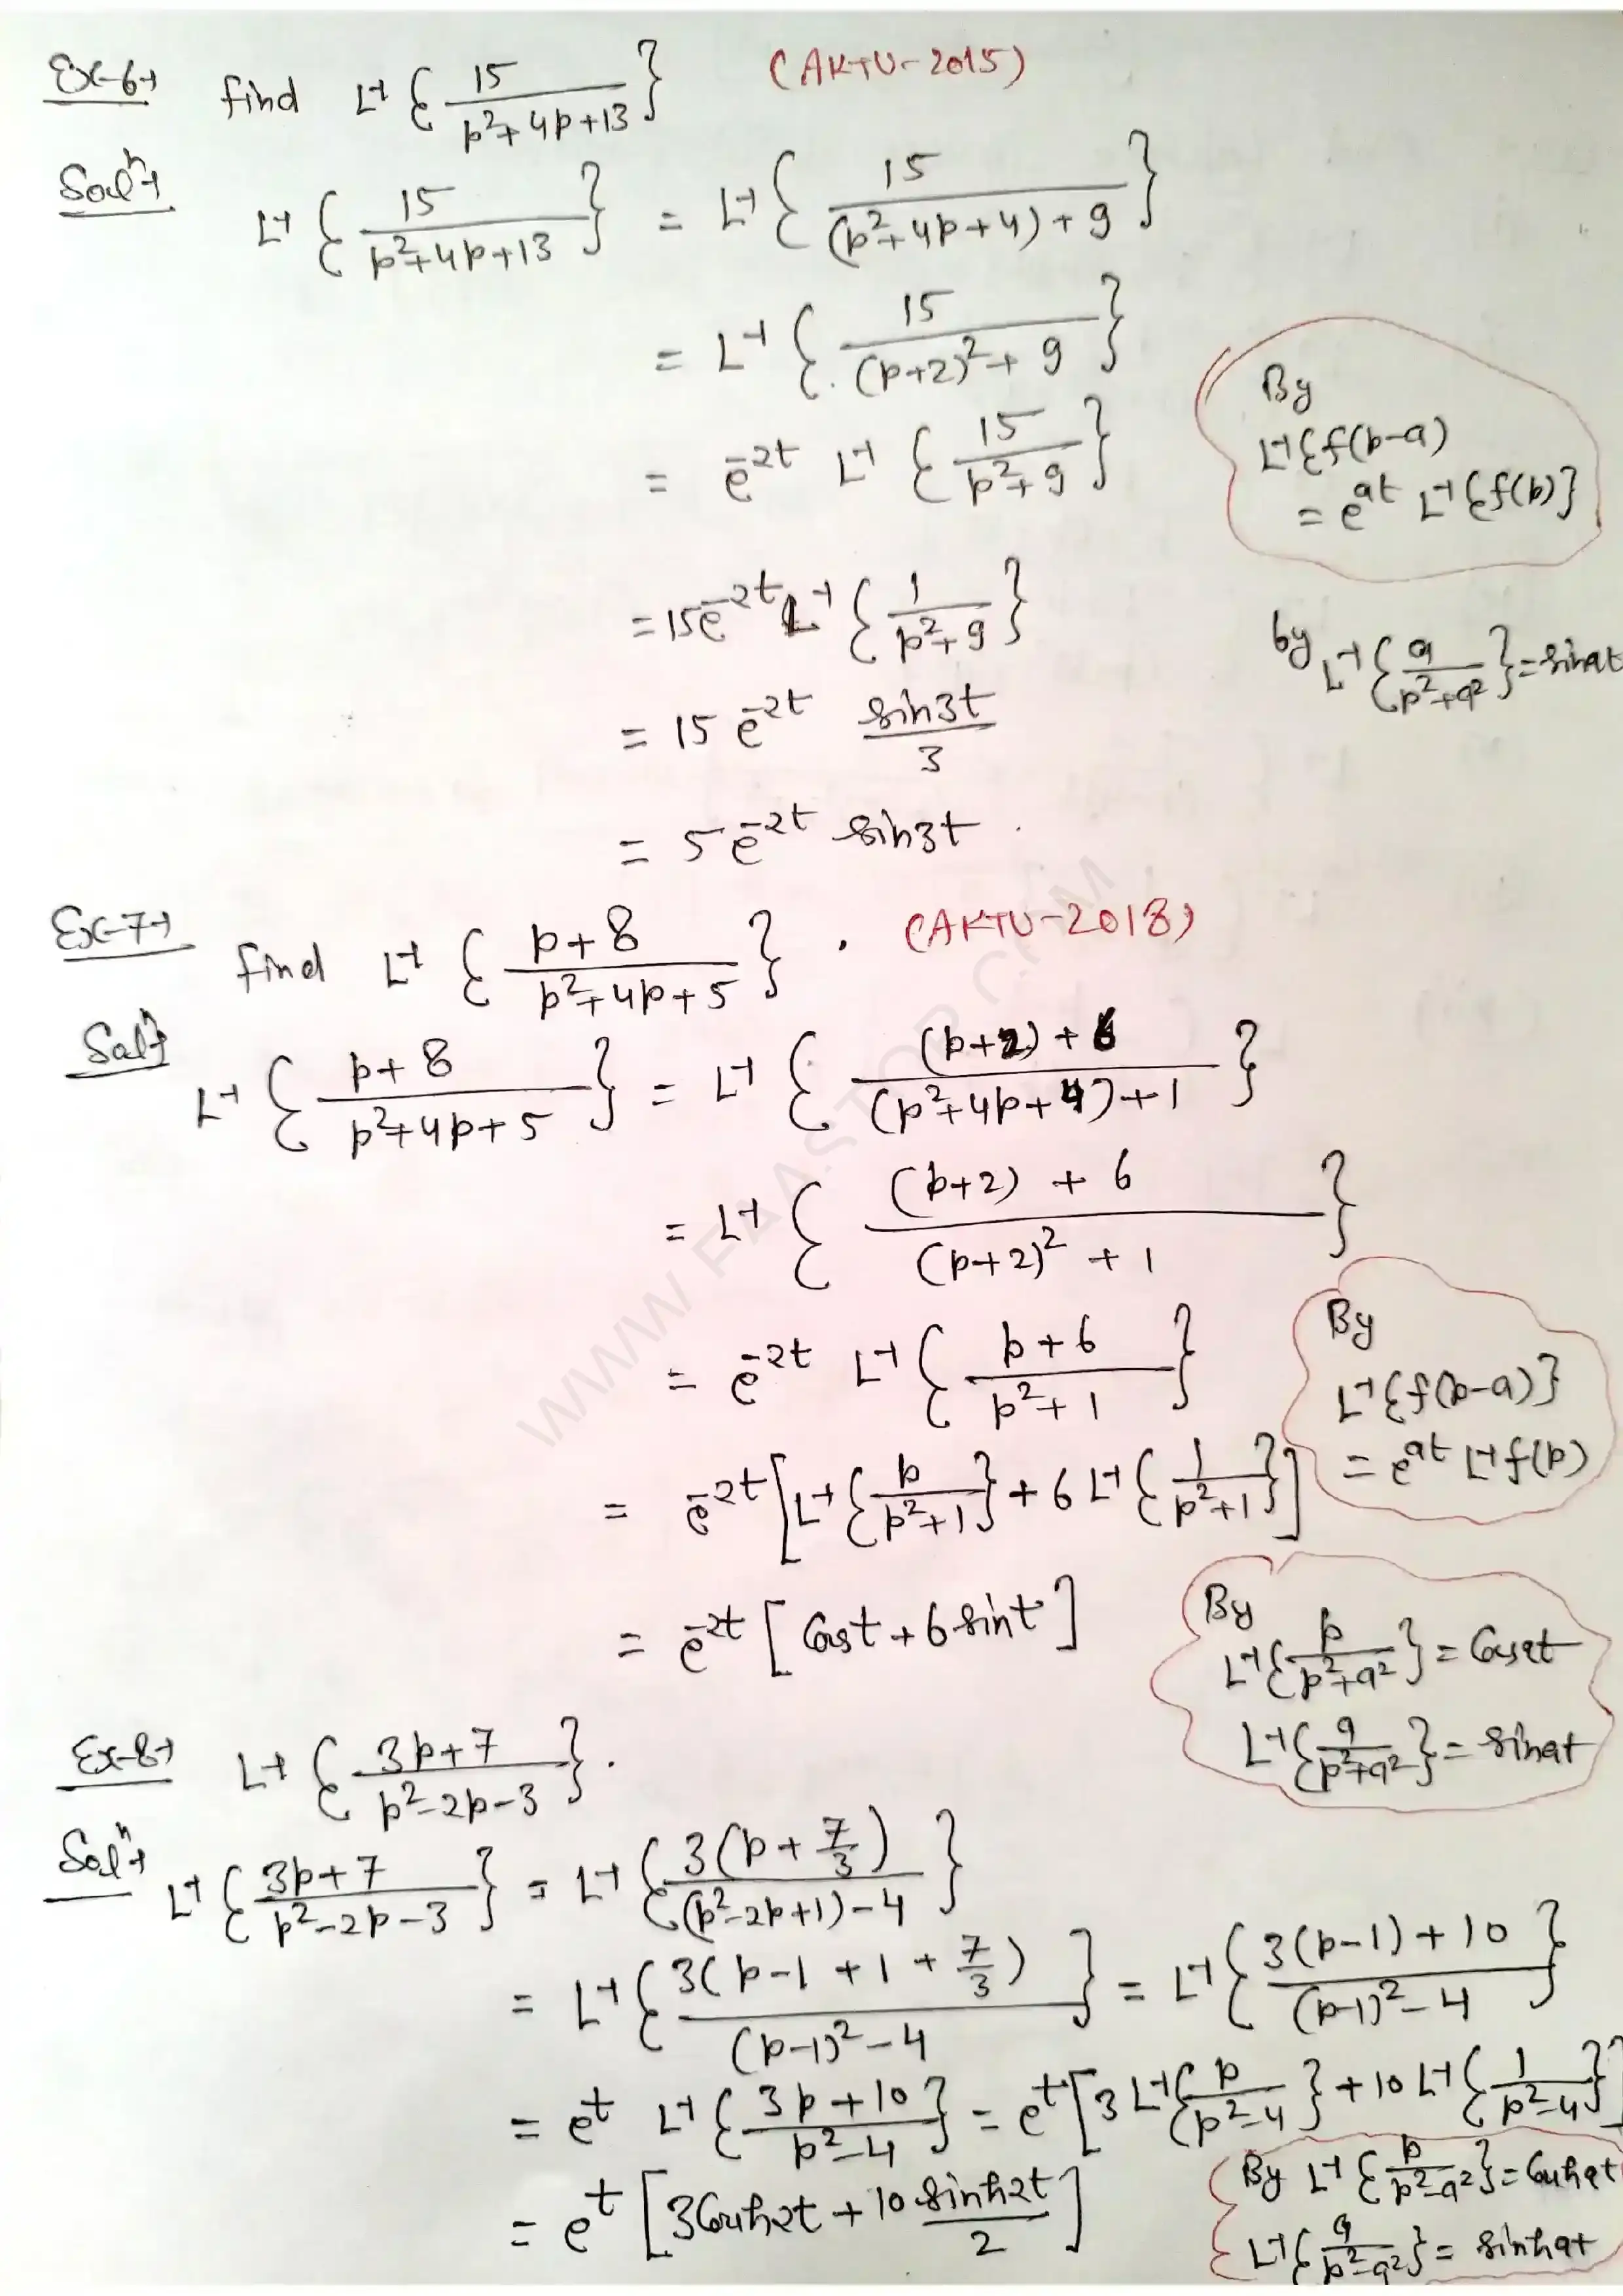 Ex-6→ find L⁻¹ { 15 / p²+4p+13 } (AKTU-2015)
Solⁿ→
L⁻¹ { 15 / p²+4p+13 } = L⁻¹ { 15 / (p²+4p+4)+9 }
= L⁻¹ { 15 / (p+2)²+9 }
= e⁻²ᵗ L⁻¹ { 15 / p²+9 }
By
L⁻¹{f(p-a)
= eᵃᵗ L⁻¹{f(p)}
= 15e⁻²ᵗ L⁻¹ { 1 / p²+9 }
by L⁻¹ { a / p²+a² } = sinat
= 15 e⁻²ᵗ sin3t / 3
= 5e⁻²ᵗ sin3t .
Ex-7→ find L⁻¹ { p+8 / p²+4p+5 } . (AKTU-2018)
Solⁿ→
L⁻¹ { p+8 / p²+4p+5 } = L⁻¹ { (p+2)+6 / (p²+4p+4)+1 }
= L⁻¹ { (p+2)+6 / (p+2)²+1 }
= e⁻²ᵗ L⁻¹ { p+6 / p²+1 }
By
L⁻¹{f(p-a)}
= eᵃᵗ L⁻¹f(p)
= e⁻²ᵗ [ L⁻¹ { p / p²+1 } + 6 L⁻¹ { 1 / p²+1 } ]
= e⁻²ᵗ [ Cost + 6 sint ]
By
L⁻¹ { p / p²+a² } = Cosat
L⁻¹ { a / p²+a² } = sinat
Ex-8→ L⁻¹ { 3p+7 / p²-2p-3 } .
Solⁿ→ L⁻¹ { 3p+7 / p²-2p-3 } = L⁻¹ { 3(p+7/3) / (p²-2p+1)-4 }
= L⁻¹ { 3(p-1+1+7/3) / (p-1)²-4 } = L⁻¹ { 3(p-1)+10 / (p-1)²-4 }
= eᵗ L⁻¹ { 3p+10 / p²-4 } = eᵗ [ 3 L⁻¹ { p / p²-4 } + 10 L⁻¹ { 1 / p²-4 } ]
= eᵗ [ 3Cosh2t + 10 sinh2t / 2 ]
By L⁻¹ { p / p²-a² } = Coshat
L⁻¹ { a / p²-a² } = sinhat
WWW.FAASTOP.COM